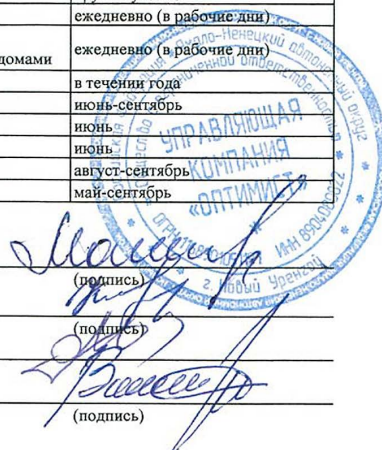 ежедневно (в рабочие дни)
ежедневно (в рабочие дни)
домами
в течении года
июнь-сентябрь
июнь
июнь
август-сентябрь
май-сентябрь
Ямало-Ненецкий автономный округ
ограниченной ответственностью
УПРАВЛЯЮЩАЯ
КОМПАНИЯ
«ОПТИМИСТ»
ОГРН
ИНН
г. Новый Уренгой
(подпись)
(подпись)
(подпись)